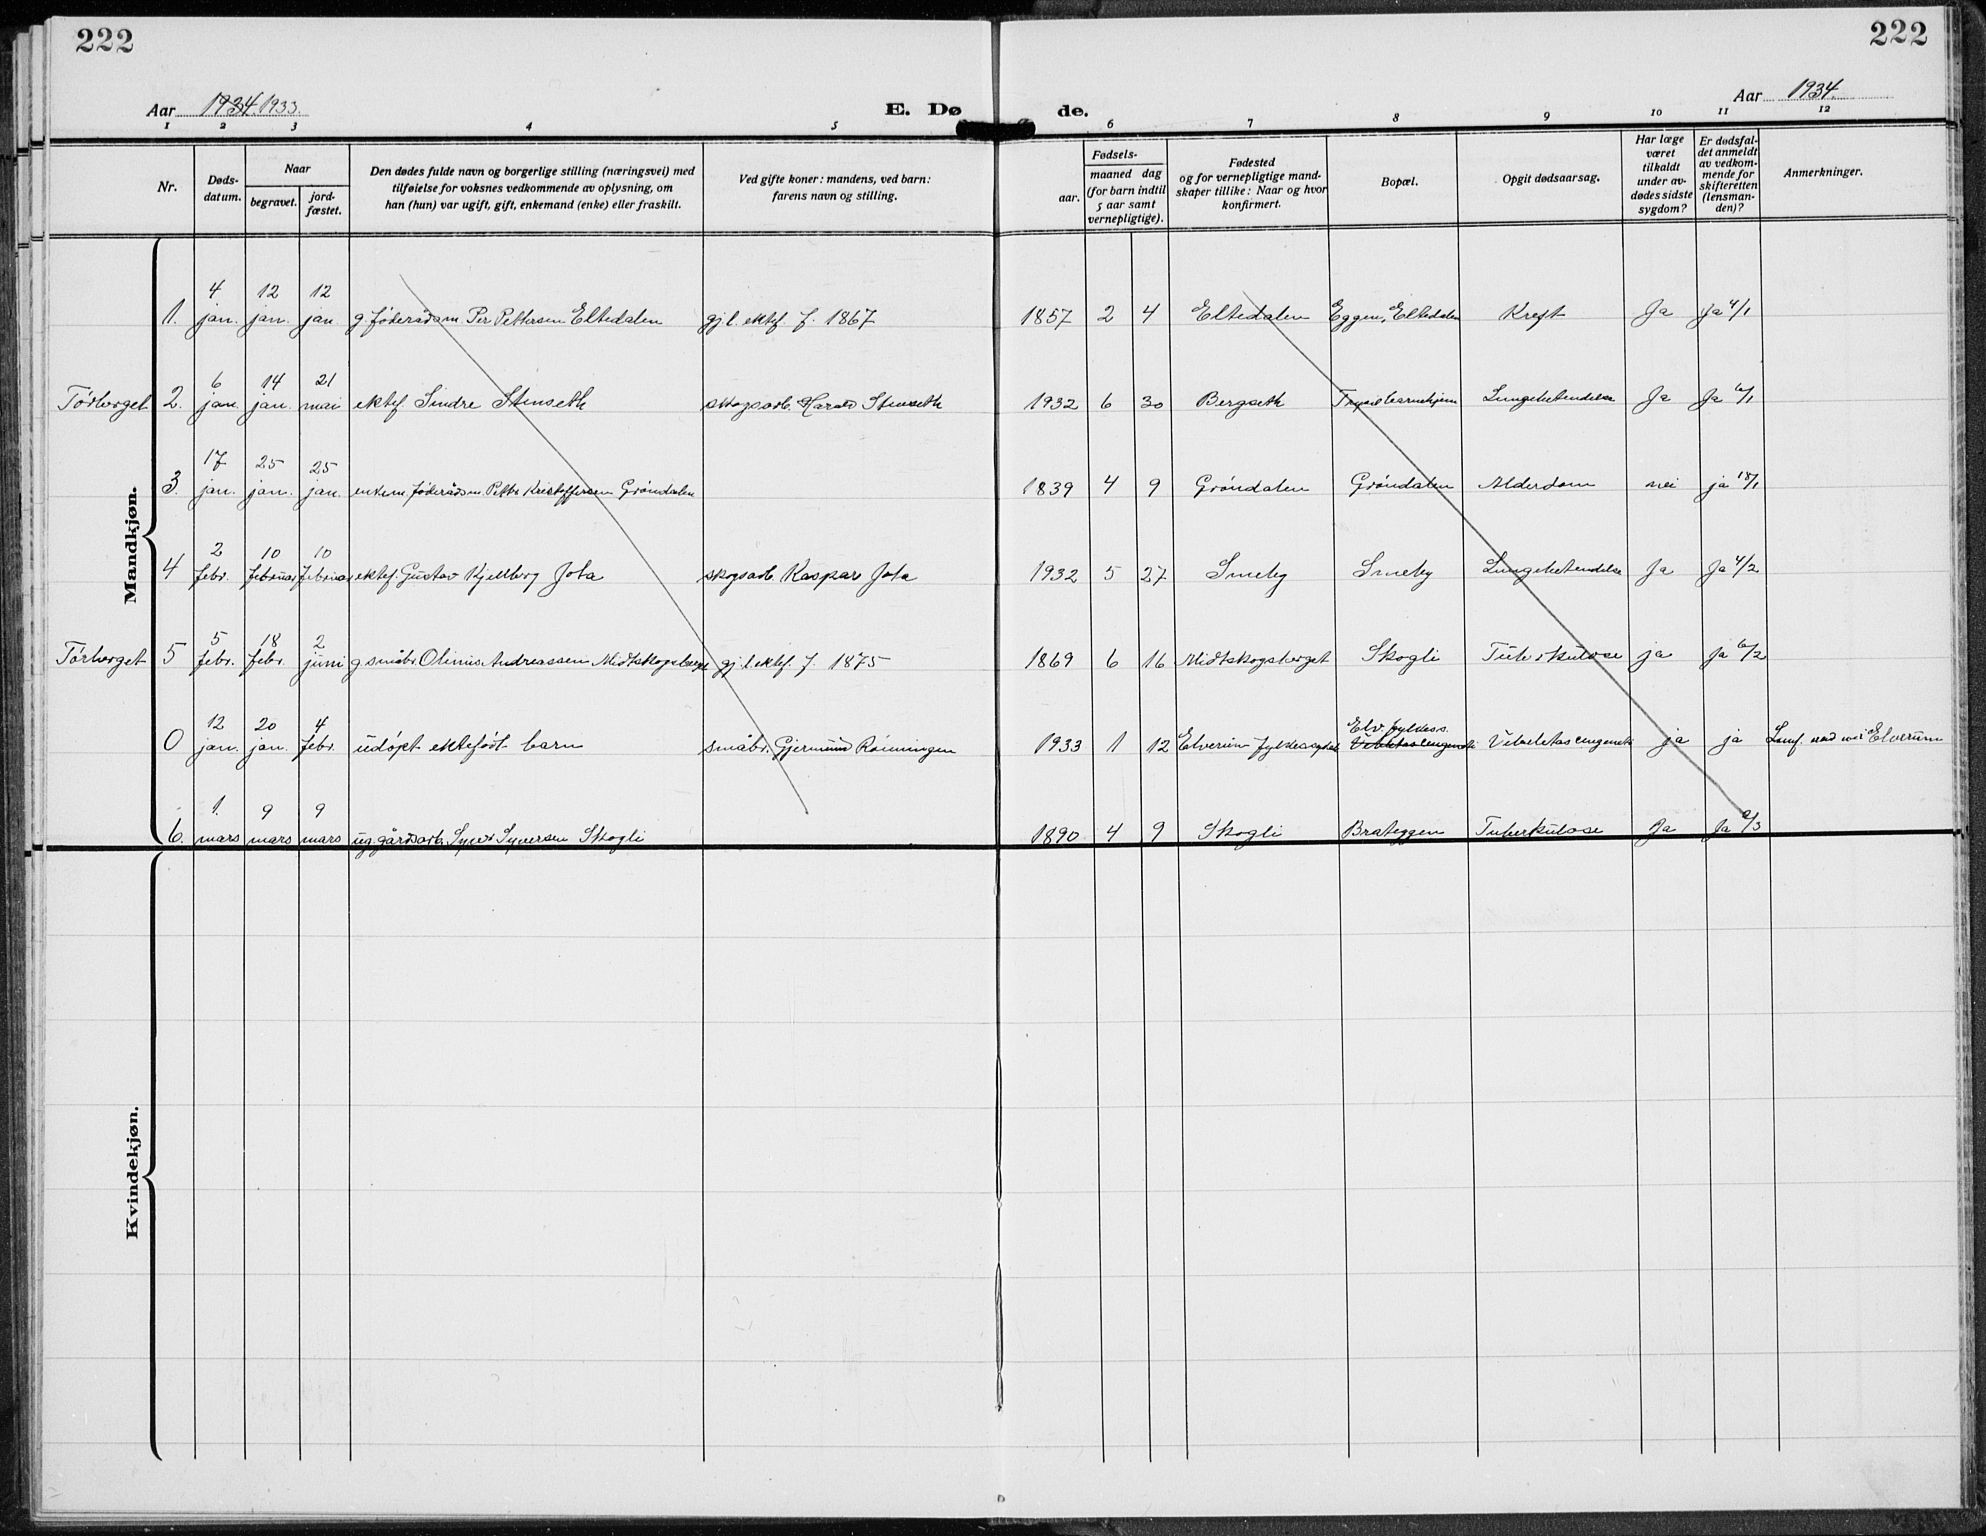 222
222
Aar 1934. 1933.
E. Dø
de.
Aar 1934.
1 2 3 4 5 6 7 8 9 10 11 12
Nr.
Døds-
datum.
Naar
begravet.
jord-
fæstet.
Den dødes fulde navn og borgerlige stilling (næringsvei) med
tilføielse for voksnes vedkommende av oplysning, om
han (hun) var ugift, gift, enkemand (enke) eller fraskilt.
Ved gifte koner: mandens, ved barn:
farens navn og stilling.
Fødsels-
aar.
maaned dag
(for barn indtil
5 aar samt
vernepligtige).
Fødested
og for vernepligtige mand-
skaper tillike: Naar og hvor
konfirmert.
Bopæl.
Opgit dødsaarsag.
Har læge
været
tilkaldt
under av-
dødes sidste
sygdom?
Er dødsfal-
det anmeldt
av vedkom-
mende for
skifteretten
(lensman-
den)?
Anmerkninger.
Mandkjøn.
4 12 12
1. jan. jan. jan. g. føderådsm. Per Pettersen Eltedalen gj. l. ektef. f. 1867 1857 2 4 Eltedalen Eggen, Eltedalen Kreft Ja Ja 4/1
6 14 21
Törberget 2. jan. jan. mai ektef. Sindre Stenseth skogsarb. Harald Stenseth 1932 6 30 Bergseth Trysil barnehjem Lungebetendelse Ja Ja 6/1
17 25 25
3. jan. jan. jan. enkem. føderådsm. Petter Kristoffersen Gröndalen 1839 4 9 Gröndalen Gröndalen Alderdom nei ja 18/1
2 10 10
4 febr. februar februar ektef. Gustav Kjellberg Jota skogsarb. Kaspar Jota 1932 5 27 Smeby Smeby Lungebetendelse Ja Ja 4/2
5 18 2
Törberget 5 febr. febr. juni g småbr. Olinius Andreassen Midtskogsberget gj. l. ektef. f. 1875 1869 6 16 Midtskogsberget Skogli Tuberkulose ja ja 6/2
12 20 4
0 jan. jan. febr. udöpt ektefödt barn småbr. Gjermund Rönningen 1933 1 12 Elverum fylkessykeh. Elv. fylkess. ja ja Elverum
1. 9 9
6. mars mars mars ug. gårdsarb. Syver Syversen Skogli 1890 4 9 Skogli Brateggen Tuberkulose Ja Ja 2/3
Kvindekjøn.